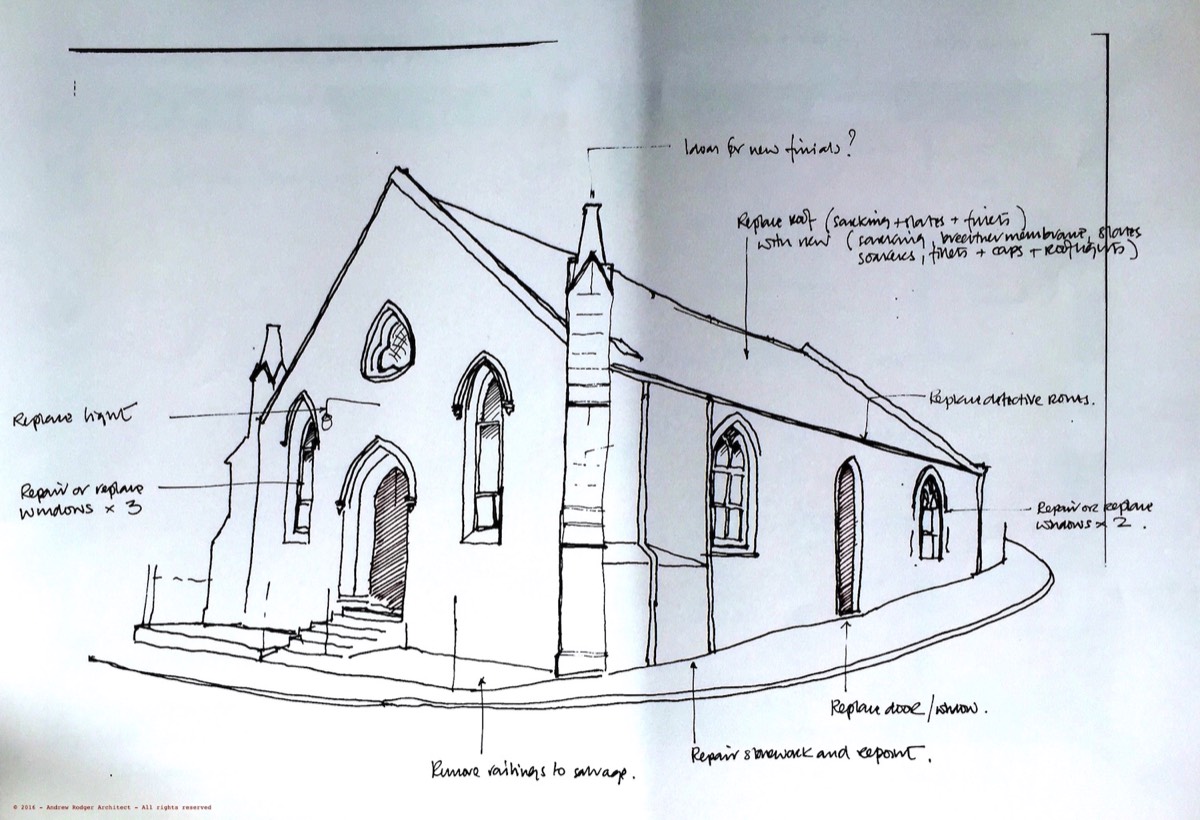 for new finials?
Replace roof (sarking + slates + fillets)
with new (sarking, breather membrane, slates
soakers, fillets + caps + rooflights)
Replace light
Replace defective rones.
Repair or replace
windows x 3
Repair or replace
windows x 2.
Replace door/window.
Repair stonework and repoint.
Remove railings to salvage.
© 2016 - Andrew Rodger Architect - All rights reserved